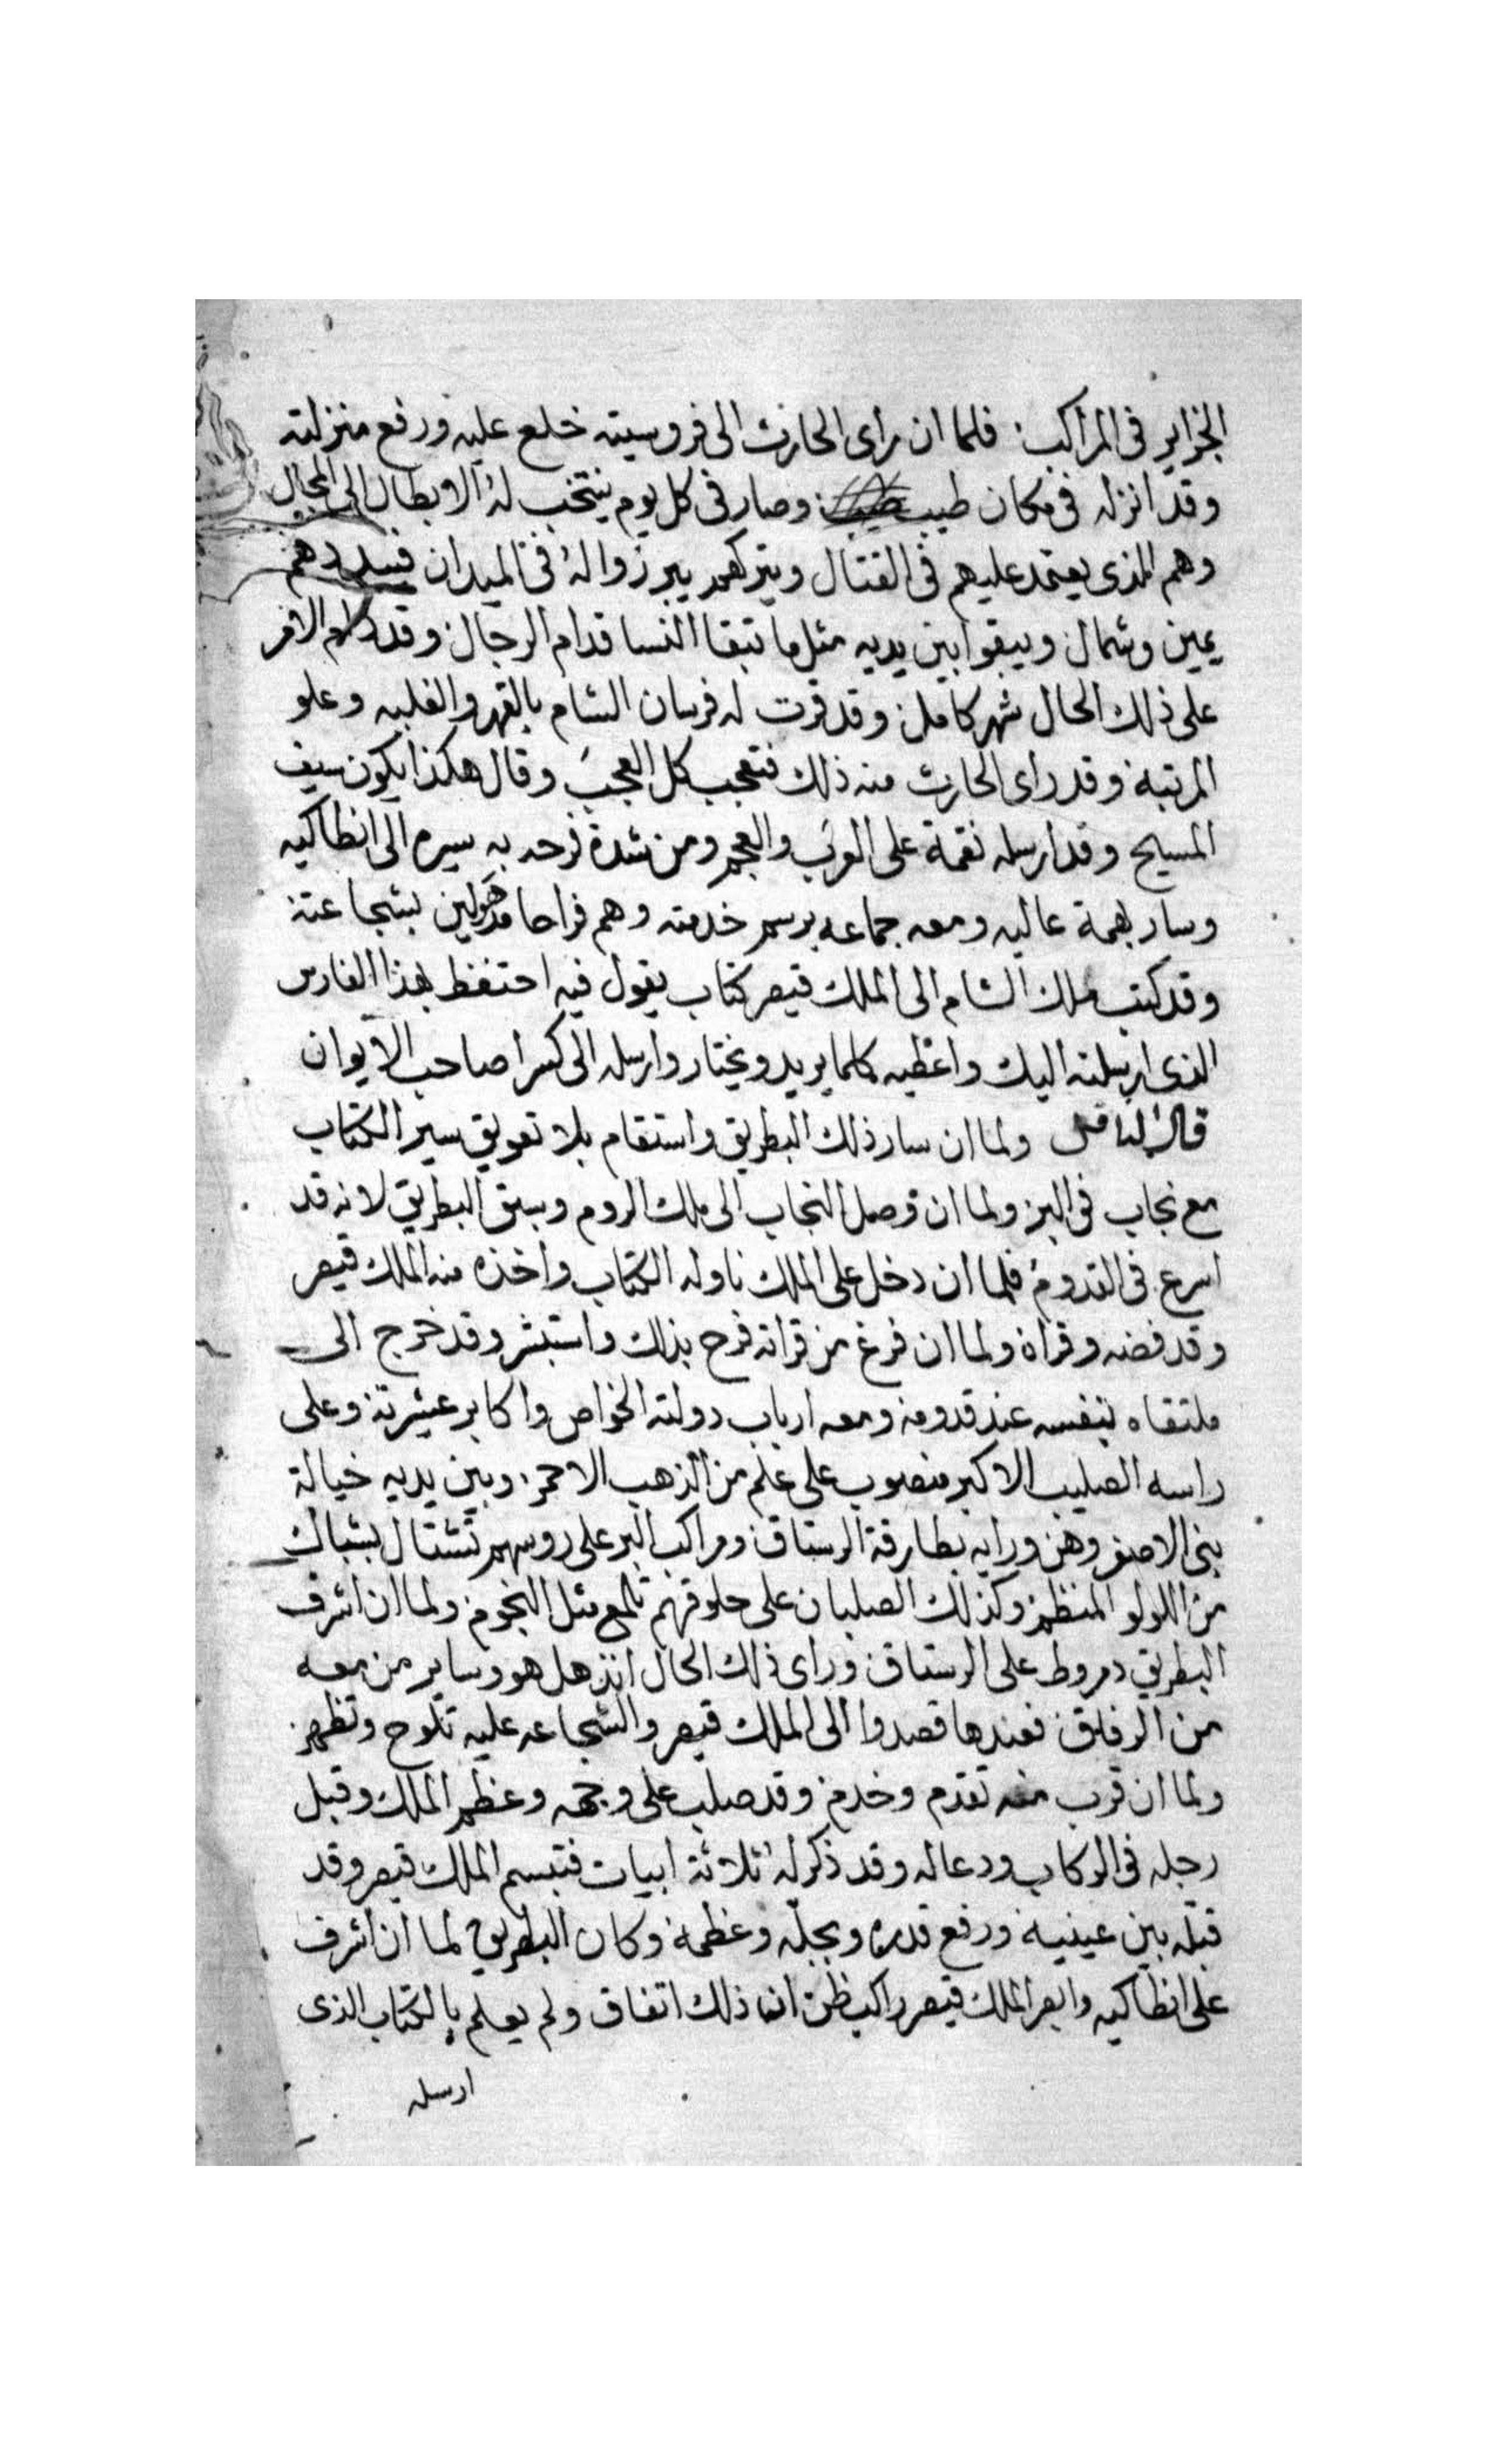 الجزاير فى المراكب فلما ان راى الحارث الى فروسيته خلع عليه ورفع منزلته
وقد انزله فى مكان طيب وصار فى كل يوم ينتخب له الابطال الى المجال
وهم الذى يعتمد عليهم فى القتال ويتركهم يبرزوا له فى الميدان فيبددهم
يمين وشمال ويبقوا بين يديه مثل ما تبقا النسا قدام الرجال وقد دام الامر
على ذلك الحال شهر كامل وقد قرت له فرسان الشام بالقهر والغلبه وعلو
المرتبة وقد راى الحارث منه ذلك فتعجب كل العجب وقال هكذا يكون سيف
المسيح وقد ارسله نقمة على العرب والعجم ومن شدة فرحه به سيره الى انطاكيه
وسار بهمة عاليه ومعه جماعه برسم خدمته وهم فراحا مذهولين بشجاعته
وقد كتب ملك الشام الى الملك قيصر كتاب يقول فيه احتفظ بهذا الفارس
الذى ارسلته اليك واعطيه كلما يريد ويختار وارسله الى كسرا صاحب الايوان
قال الناقل ولما ان سار ذلك البطريق واستقام بلا تعويق سير الكتاب
مع نجاب فى البر ولما ان وصل النجاب الى ملك الروم وسبق البطريق لانه قد
اسرع فى القدوم فلما ان دخل على الملك ناوله الكتاب واخذه منه الملك قيصر
وقد فضه وقراه ولما ان فرغ من قراته فرح بذلك واستبشر وقد خرج الى
ملتقاه بنفسه عند قدومه ومعه ارباب دولته الخواص واكابر عشيرته وعلى
راسه الصليب الاكبر منصوب على علم من الذهب الاحمر وبين يديه خيالة
بنى الاصفر وهن ورايه بطارقة الرستاق ومراكب البر على روسهم تشتال بشباك
من اللولو المنظم وكذلك الصلبان على حلوقهم تلمع مثل النجوم ولما ان اشرف
البطريق دمروط على الرستاق وراى ذلك الحال انذهل هو وساير من معه
من الرفاق فعندها قصدوا الى الملك قيصر والشجاعه عليه تلوح وتظهر
ولما ان قرب منه تقدم وخدم وقد صلب على وجهه وعظم الملك وقبل
رجله فى الركاب ودعا له وقد ذكر له ثلاثة ابيات فتبسم الملك قيصر وقد
قبله بين عينيه ورفع قدره وبجله وعظمه وكان البطريق لما ان اشرف
على انطاكيه وابصر الملك قيصر راكب ظن ان ذلك اتفاق ولم يعلم بالكتاب الذى
ارسله